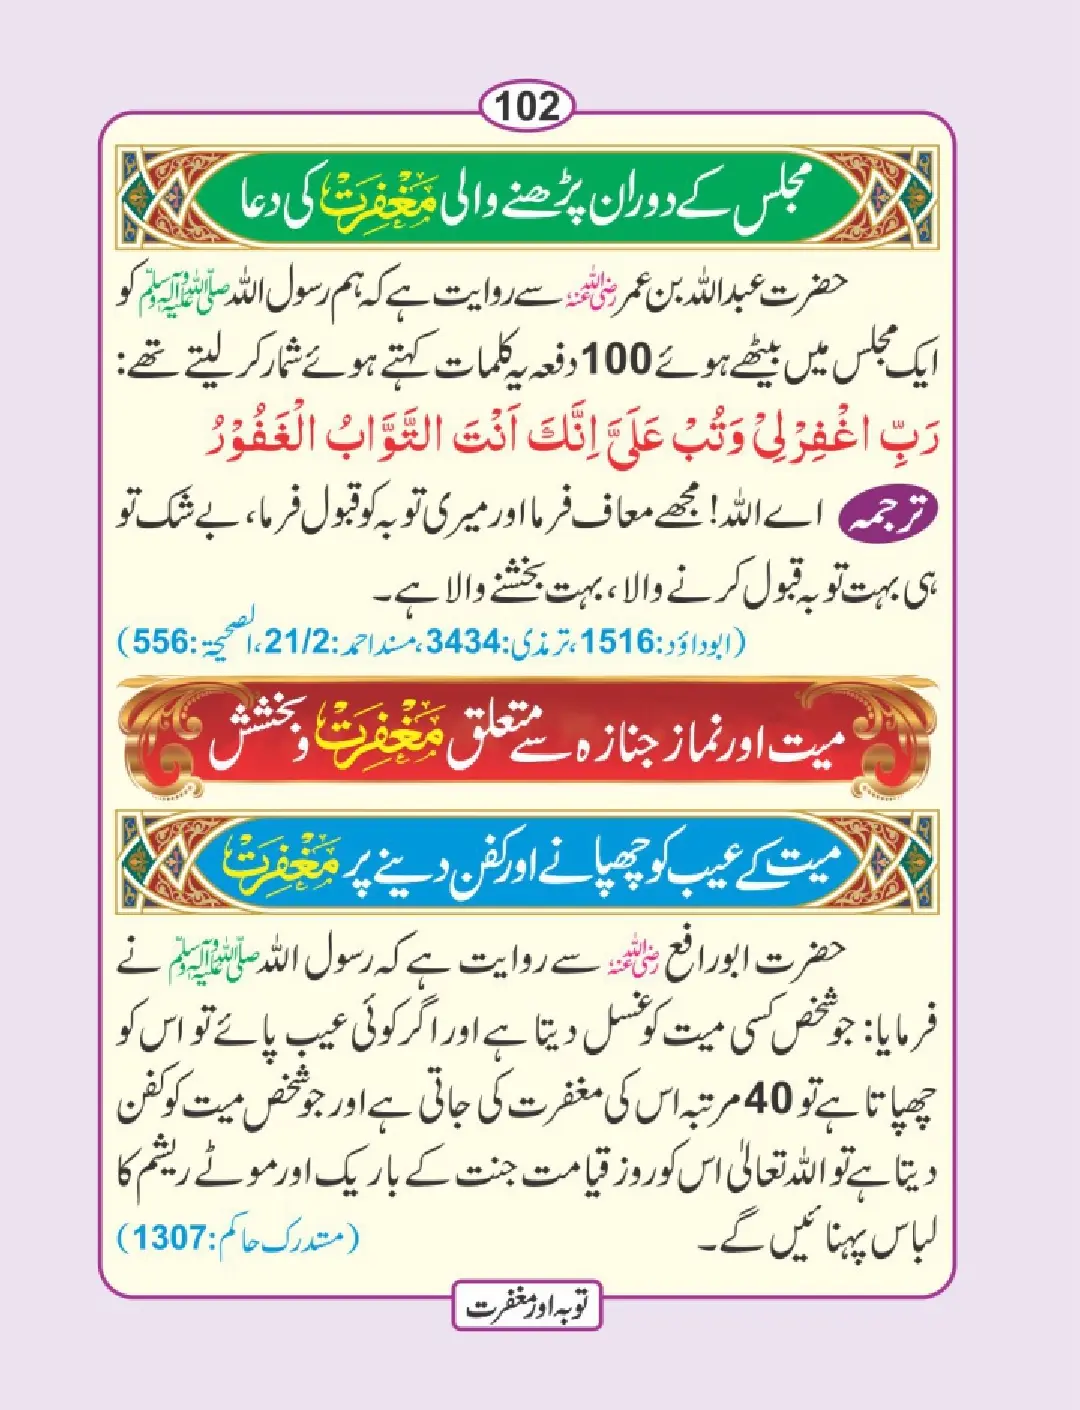 102
مجلس کے دوران پڑھنے والی مَغْفِرَتْ کی دعا
حضرت عبداللہ بن عمر رضی اللہ عنہ سے روایت ہے کہ ہم رسول اللہ صلی اللہ علیہ وآلہ وسلم کو
ایک مجلس میں بیٹھے ہوئے 100 دفعہ یہ کلمات کہتے ہوئے شمار کر لیتے تھے:
رَبِّ اغْفِرْلِیْ وَتُبْ عَلَیَّ اِنَّكَ اَنْتَ التَّوَّابُ الْغَفُوْرُ
ترجمہ اے اللہ! مجھے معاف فرما اور میری توبہ کو قبول فرما، بے شک تو
ہی بہت توبہ قبول کرنے والا، بہت بخشنے والا ہے۔
(ابوداؤد:1516، ترمذی:3434، مسند احمد:21/2، الصحیحۃ:556)
میت اور نماز جنازہ سے متعلق مَغْفِرَتْ و بخشش
میت کے عیب کو چھپانے اور کفن دینے پر مَغْفِرَتْ
حضرت ابو رافع رضی اللہ عنہ سے روایت ہے کہ رسول اللہ صلی اللہ علیہ وآلہ وسلم نے
فرمایا: جو شخص کسی میت کو غسل دیتا ہے اور اگر کوئی عیب پائے تو اس کو
چھپاتا ہے تو 40 مرتبہ اس کی مغفرت کی جاتی ہے اور جو شخص میت کو کفن
دیتا ہے تو اللہ تعالیٰ اس کو روز قیامت جنت کے باریک اور موٹے ریشم کا
لباس پہنائیں گے۔ (مستدرک حاکم:1307)
توبہ اور مغفرت